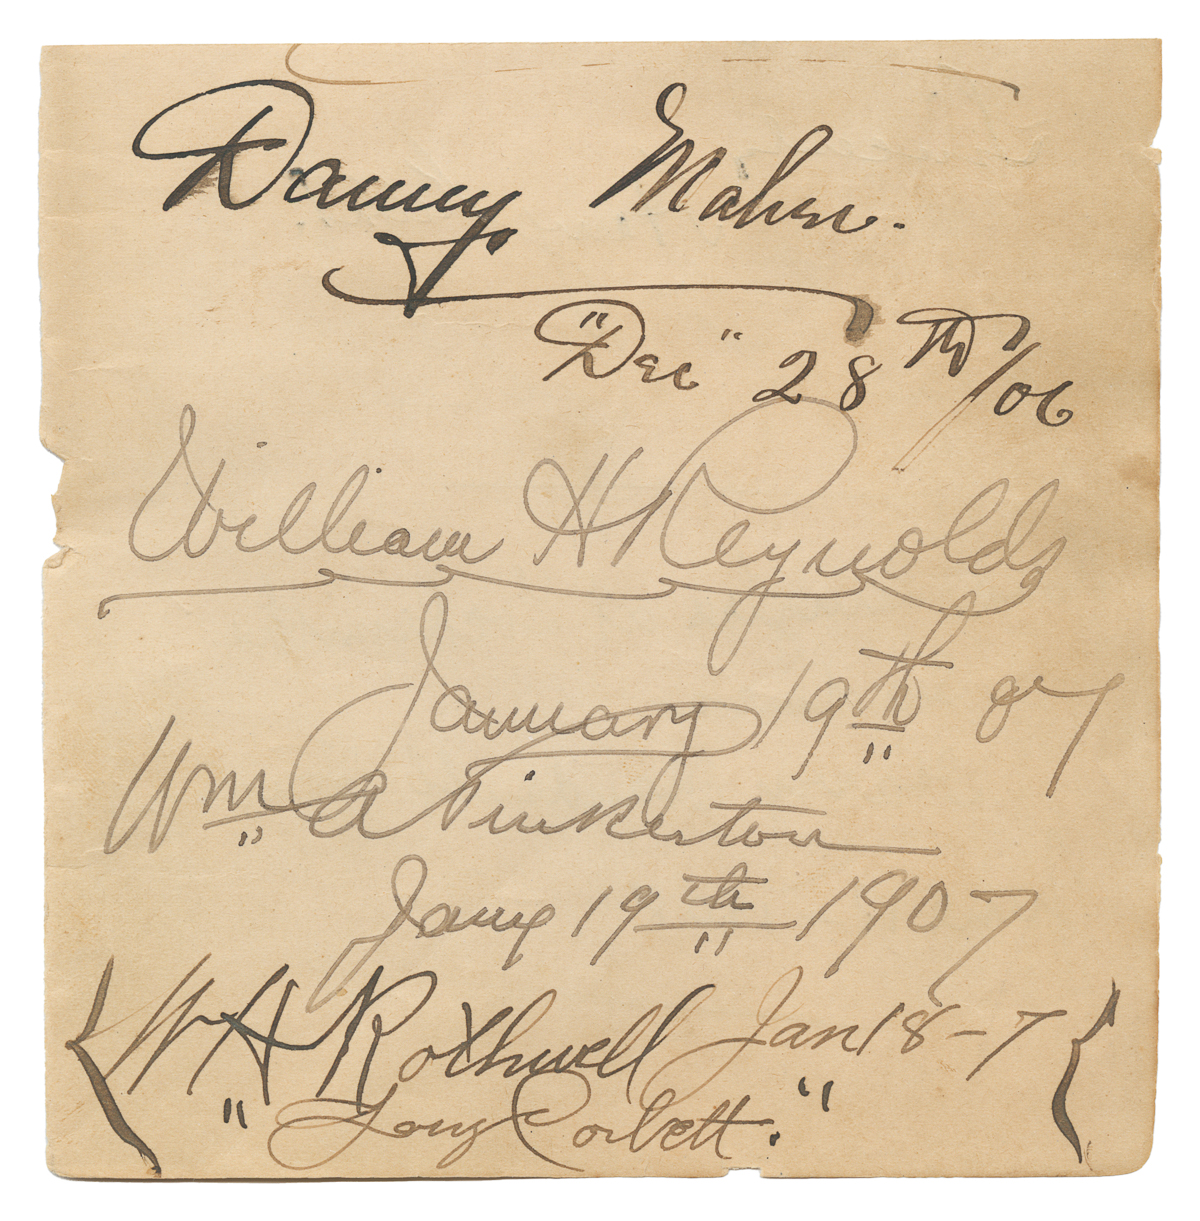 Danny Maher.
"Dec" 28th/06
William H Reynolds
January 19th 07
Wm A Pinkerton
Jany 19th 1907
W H Rothwell Jan 18-7
"Young Corbett."